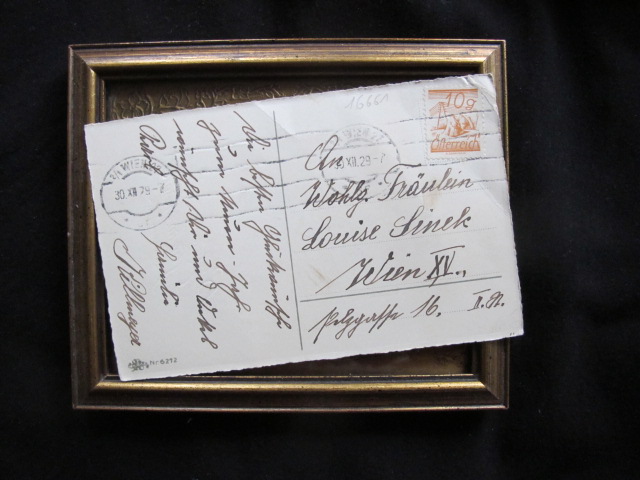 16661
10g
Österreich
WIEN
30.XII.29-7
30.XII.29-7
An
Wohlg. Fräulein
Louise Sinek
Wien XV.,
Pelzgasse 16. II. St.
Die besten Glückwünsche
zum neuen Jahr
wünscht Dir und
Familie
Nr. 6212